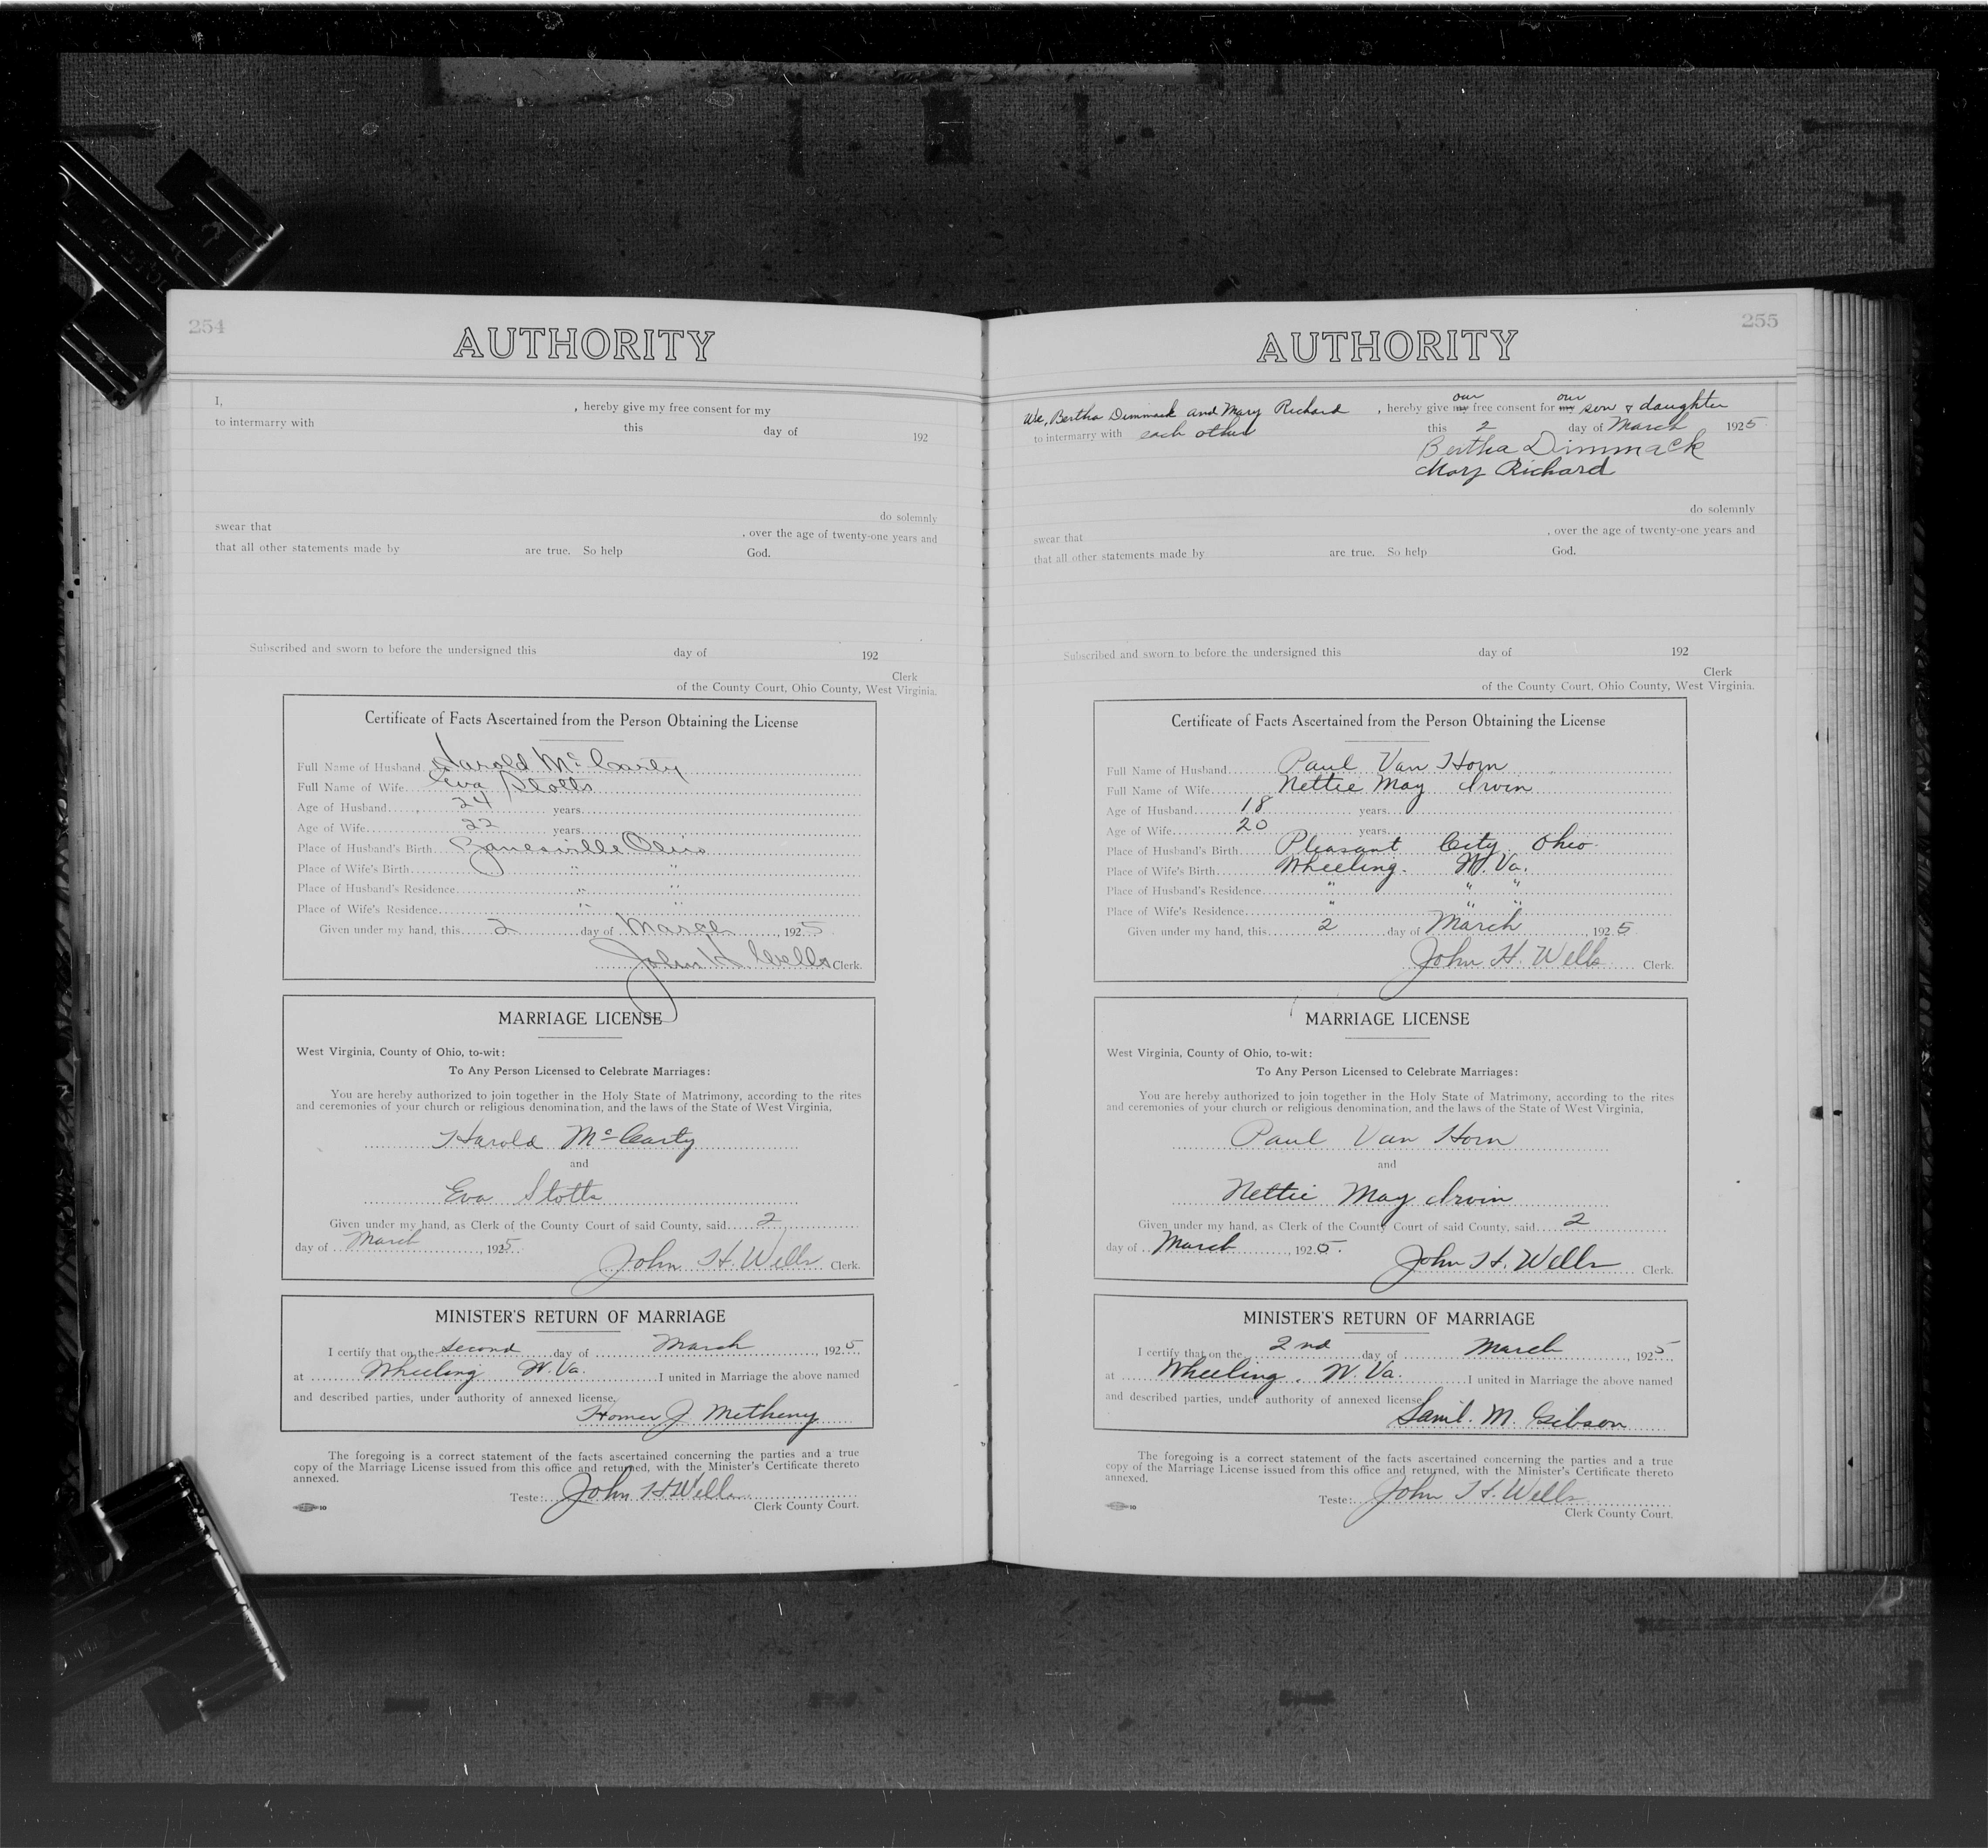 254
AUTHORITY
I, , hereby give my free consent for my
to intermarry with this day of 192
do solemnly
swear that , over the age of twenty-one years and
that all other statements made by are true. So help God.
Subscribed and sworn to before the undersigned this day of 192
Clerk
of the County Court, Ohio County, West Virginia.
Certificate of Facts Ascertained from the Person Obtaining the License
Full Name of Husband Harold McCarty
Full Name of Wife Eva Stotts
Age of Husband 24 years
Age of Wife 22 years
Place of Husband's Birth Zanesville Ohio
Place of Wife's Birth " "
Place of Husband's Residence " "
Place of Wife's Residence " "
Given under my hand, this 2 day of March, 1925
John H Wells Clerk.
MARRIAGE LICENSE
West Virginia, County of Ohio, to-wit:
To Any Person Licensed to Celebrate Marriages:
You are hereby authorized to join together in the Holy State of Matrimony, according to the rites
and ceremonies of your church or religious denomination, and the laws of the State of West Virginia,
Harold McCarty
and
Eva Stotts
Given under my hand, as Clerk of the County Court of said County, said 2
day of March, 1925
John H. Wells Clerk.
MINISTER'S RETURN OF MARRIAGE
I certify that on the second day of March, 1925
at Wheeling W. Va. I united in Marriage the above named
and described parties, under authority of annexed license,
Homer J Metheny
The foregoing is a correct statement of the facts ascertained concerning the parties and a true
copy of the Marriage License issued from this office and returned, with the Minister's Certificate thereto
annexed.
Teste: John H Wells
Clerk County Court.
255
AUTHORITY
our our
We, Bertha Dimmack and Mary Richard, hereby give my free consent for my son & daughter
to intermarry with each other this 2 day of March 1925
Bertha Dimmack
Mary Richard
do solemnly
swear that , over the age of twenty-one years and
that all other statements made by are true. So help God.
Subscribed and sworn to before the undersigned this day of 192
Clerk
of the County Court, Ohio County, West Virginia.
Certificate of Facts Ascertained from the Person Obtaining the License
Full Name of Husband Paul Van Horn
Full Name of Wife Nettie May Irvin
Age of Husband 18 years
Age of Wife 20 years
Place of Husband's Birth Pleasant City Ohio
Place of Wife's Birth Wheeling. W. Va.
Place of Husband's Residence " " "
Place of Wife's Residence " " "
Given under my hand, this 2 day of March, 1925
John H. Wells Clerk.
MARRIAGE LICENSE
West Virginia, County of Ohio, to-wit:
To Any Person Licensed to Celebrate Marriages:
You are hereby authorized to join together in the Holy State of Matrimony, according to the rites
and ceremonies of your church or religious denomination, and the laws of the State of West Virginia,
Paul Van Horn
and
Nettie May Irvin
Given under my hand, as Clerk of the County Court of said County, said 2
day of March, 1925.
John H. Wells Clerk.
MINISTER'S RETURN OF MARRIAGE
I certify that on the 2nd day of March, 1925
at Wheeling, W. Va. I united in Marriage the above named
and described parties, under authority of annexed license,
Saml. M. Gibson
The foregoing is a correct statement of the facts ascertained concerning the parties and a true
copy of the Marriage License issued from this office and returned, with the Minister's Certificate thereto
annexed.
Teste: John H. Wells
Clerk County Court.